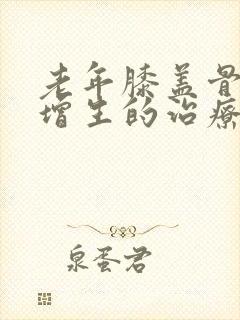 老年膝盖骨
增生的治疗
泉蛋君